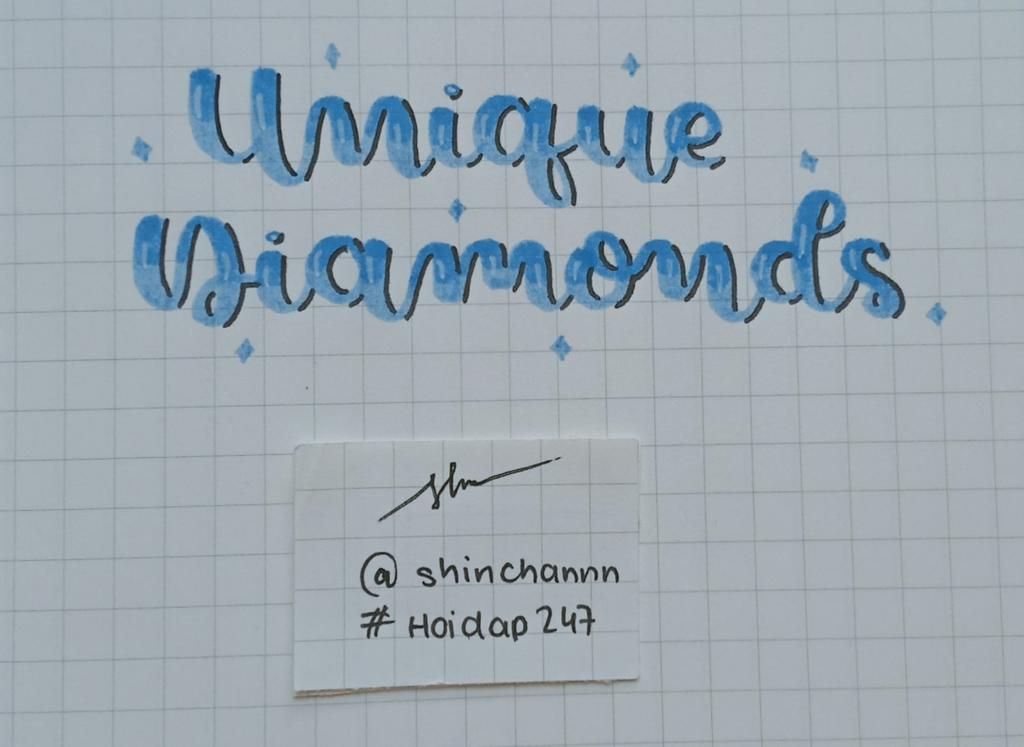 Unique
Diamonds
@ shinchannn
# Hoidap 247